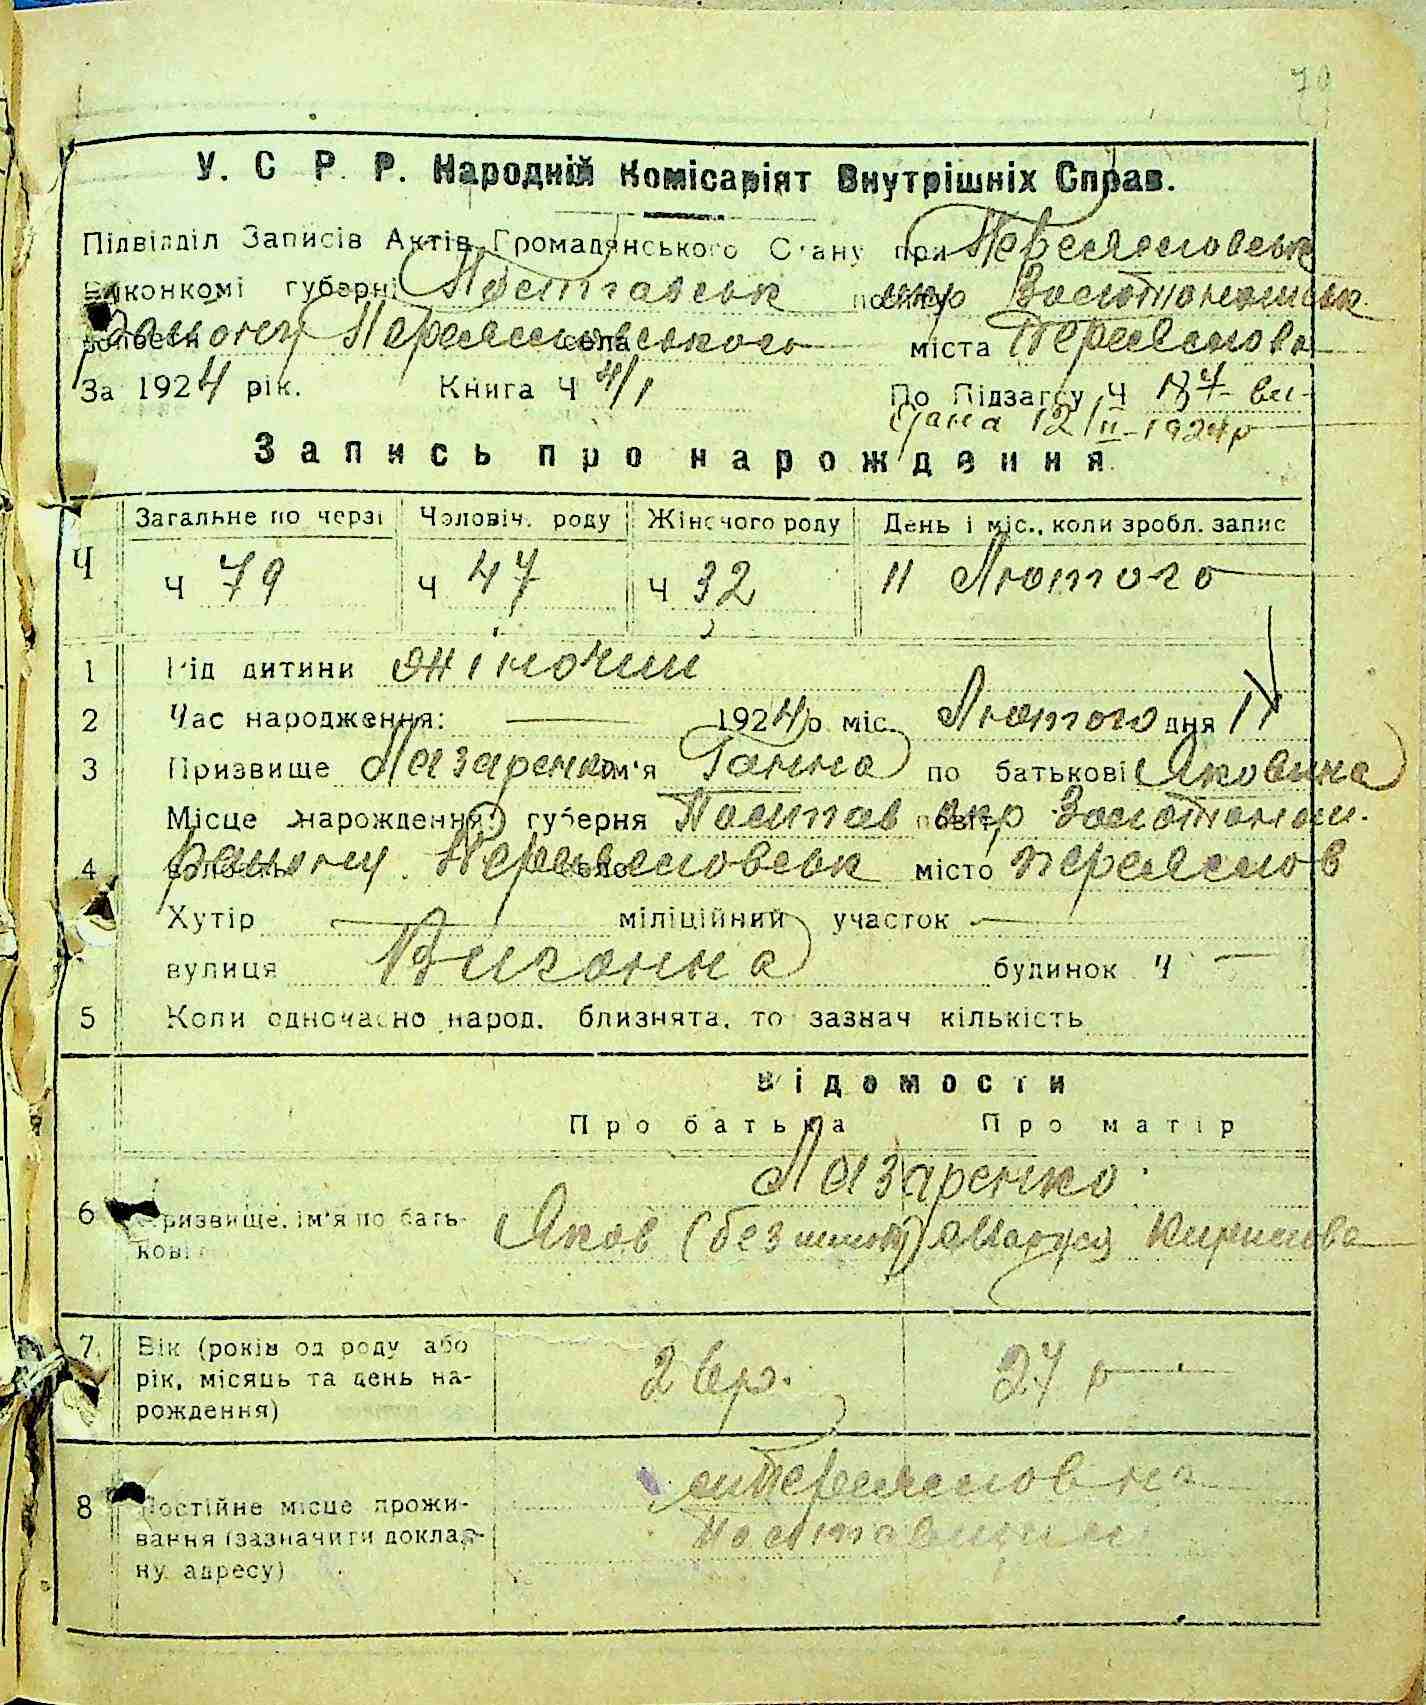 70
У. С Р. Р. Народній Комісаріят Внутрішніх Справ.
Підвідділ Записів Актів Громадянського Стану при Переяславськ
Виконкомі губерні Полтавськ повіту окр Золотоношськ
волости району Переяславського села міста Переяслова
За 1924 рік. Книга Ч 4/1 По Підзагсу Ч 187 ви-
дана 12/II-1924р
Запись про народження
Ч Загальне по черзі Чоловіч. роду Жіночого роду День і міс., коли зробл. запис
ч 79 ч 47 ч 32 11 Лютого
1 Рід дитини жіночий
2 Час народження: 1924 р. міс. Лютого дня 11
3 Призвище Лазаренко ім'я Ганна по батькові Яковина
Місце нарождення: губерня Полтав повіт окр Золотонош.
4 волость району Переяславськ село місто Переяслов
Хутір міліційний участок
вулиця Вигонна будинок ч
5 Коли одночасно народ. близнята, то зазнач кількість
Відомости
Про батька Про матір
Лазаренко
6 Призвище, ім'я по бать- Яков Маруся
кові
7 Вік (років од роду або
рік, місяць та день на- 26р. 24 р
рождення)
8 Постійне місце прожи- м Переяслов на
вання (зазначити доклад- Полтавщині
ну адресу)